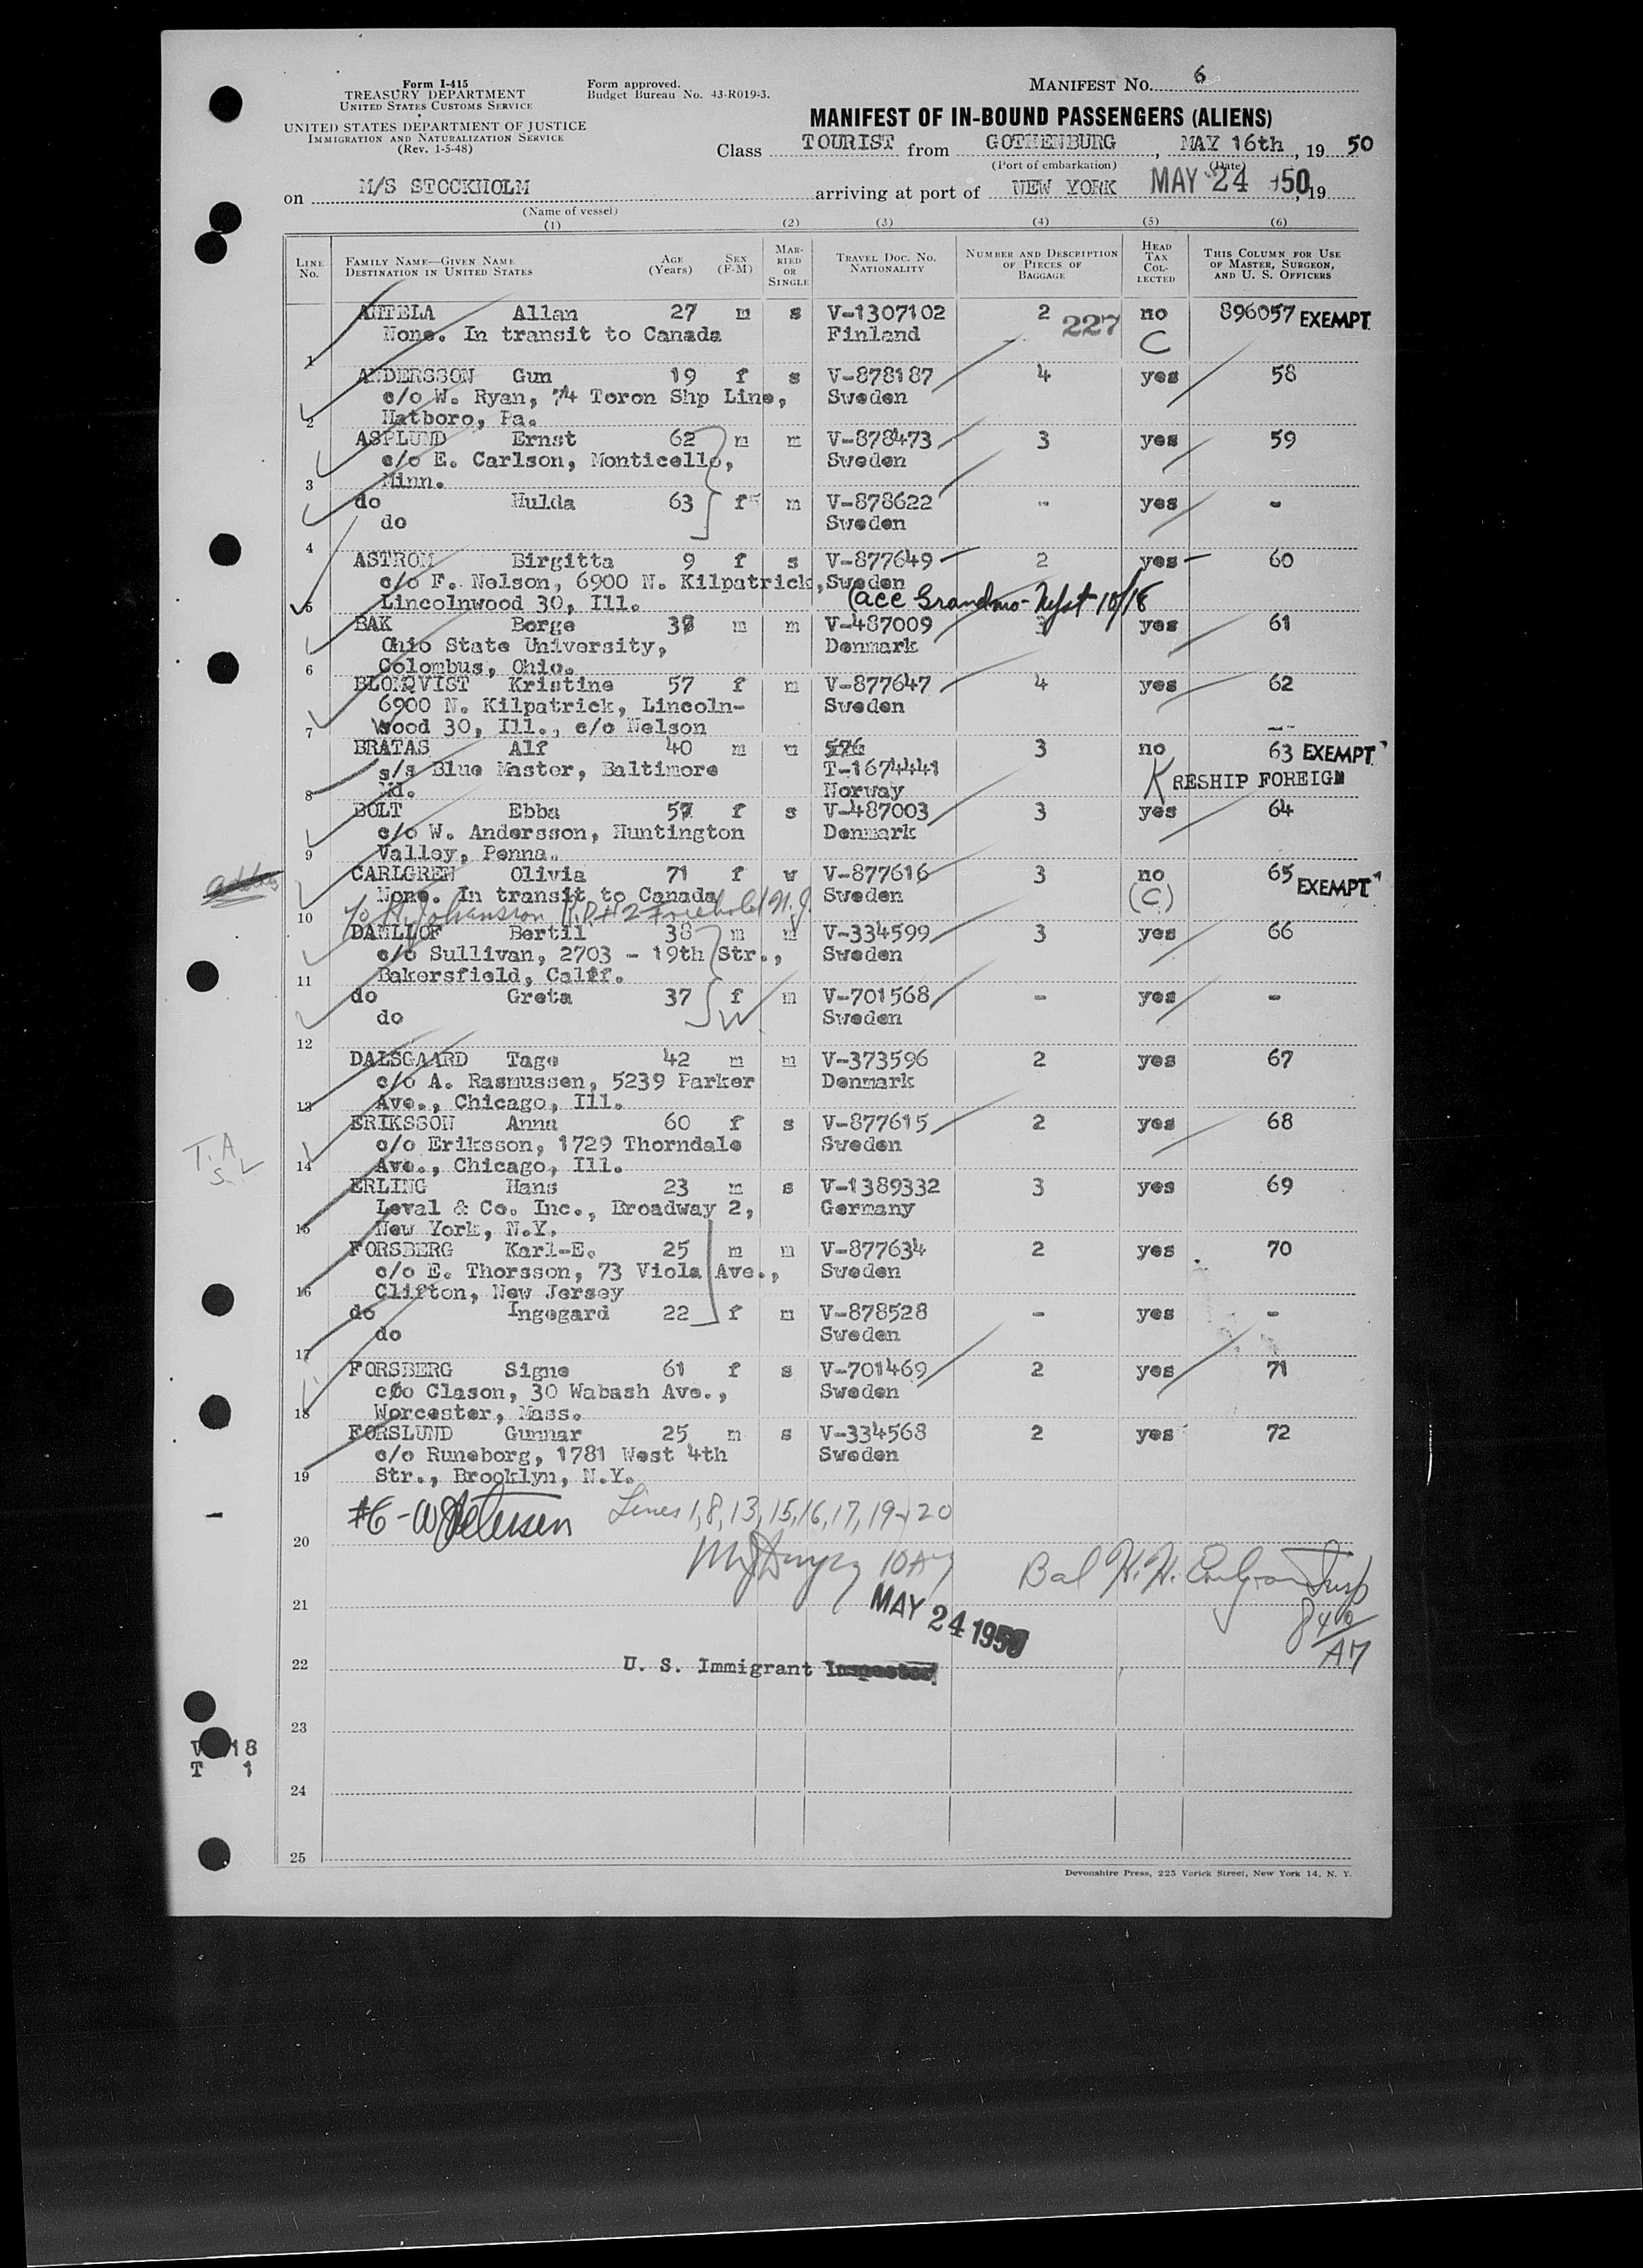 Form I-415
TREASURY DEPARTMENT
UNITED STATES CUSTOMS SERVICE
UNITED STATES DEPARTMENT OF JUSTICE
IMMIGRATION AND NATURALIZATION SERVICE
(Rev. 1-5-48)
Form approved.
Budget Bureau No. 43-R019-3.
MANIFEST NO. 6
MANIFEST OF IN-BOUND PASSENGERS (ALIENS)
Class TOURIST from GOTHENBURG, MAY 16th, 19 50
(Port of embarkation) (Date)
on M/S STOCKHOLM arriving at port of NEW YORK MAY 24 1950, 19
(Name of vessel)
(1) (2) (3) (4) (5) (6)
LINE NO. FAMILY NAME—GIVEN NAME DESTINATION IN UNITED STATES AGE (Years) SEX (F-M) MARRIED OR SINGLE TRAVEL DOC. NO. NATIONALITY NUMBER AND DESCRIPTION OF PIECES OF BAGGAGE HEAD TAX COLLECTED THIS COLUMN FOR USE OF MASTER, SURGEON, AND U. S. OFFICERS
ANTELA Allan 27 m s V-1307102 2 no 896057 EXEMPT
None. In transit to Canada Finland 227 C
1
ANDERSSON Gun 19 f s V-878187 4 yes 58
c/o W. Ryan, 74 Toron Shp Line, Sweden
2 Hatboro, Pa.
ASPLUND Ernst 62 m m V-878473 3 yes 59
c/o E. Carlson, Monticello, Sweden
3 Minn.
do Hulda 63 f m V-878622 - yes -
do Sweden
4
ASTROM Birgitta 9 f s V-877649 2 yes 60
c/o F. Nelson, 6900 N. Kilpatrick, Sweden
5 Lincolnwood 30, Ill. (acc Grandmo- 10/18
BAK Borge m m V-487009 3 yes 61
Ohio State University, Denmark
6 Colombus, Ohio.
BLOMQVIST Kristine 57 f m V-877647 4 yes 62
6900 N. Kilpatrick, Lincoln- Sweden
7 wood 30, Ill., c/o Nelson
BRATAS Alf 40 m m 576 3 no 63 EXEMPT
s/s Blue Master, Baltimore T-1674441 K RESHIP FOREIGN
8 Md. Norway
BOLT Ebba 57 f s V-487003 3 yes 64
c/o W. Andersson, Huntington Denmark
9 Valley, Penna.
CARLGREN Olivia 71 f w V-877616 3 no 65 EXEMPT
None. In transit to Canada Sweden (C)
10 c/o H. Johansson R.D. #2 Freehold N.J.
DAHLLOF Bertil 38 m m V-334599 3 yes 66
c/o Sullivan, 2703 - 19th Str., Sweden
11 Bakersfield, Calif.
do Greta 37 f m V-701568 - yes -
do W Sweden
12
DALSGAARD Tage 42 m m V-373596 2 yes 67
c/o A. Rasmussen, 5239 Parker Denmark
13 Ave., Chicago, Ill.
ERIKSSON Anna 60 f s V-877615 2 yes 68
c/o Eriksson, 1729 Thorndale Sweden
T.A
S.
14 Ave., Chicago, Ill.
ERLING Hans 23 m s V-1389332 3 yes 69
Leval & Co. Inc., Broadway 2, Germany
15 New York, N.Y.
FORSBERG Karl-E. 25 m m V-877634 2 yes 70
c/o E. Thorsson, 73 Viola Ave., Sweden
16 Clifton, New Jersey
do Ingegard 22 f m V-878528 - yes -
do Sweden
17
FORSBERG Signe 61 f s V-701469 2 yes 71
c/o Clason, 30 Wabash Ave., Sweden
18 Worcester, Mass.
FORSLUND Gunnar 25 m s V-334568 2 yes 72
c/o Runeborg, 1781 West 4th Sweden
19 Str., Brooklyn, N.Y.
#6 - W Petersen Lines 1, 8, 13, 15, 16, 17, 19 + 20
20
Bal H. H. Insp
21 MAY 24 1950
22 U. S. Immigrant Inspector
23
V 18
T 1
24
25
Devonshire Press, 225 Varick Street, New York 14, N. Y.